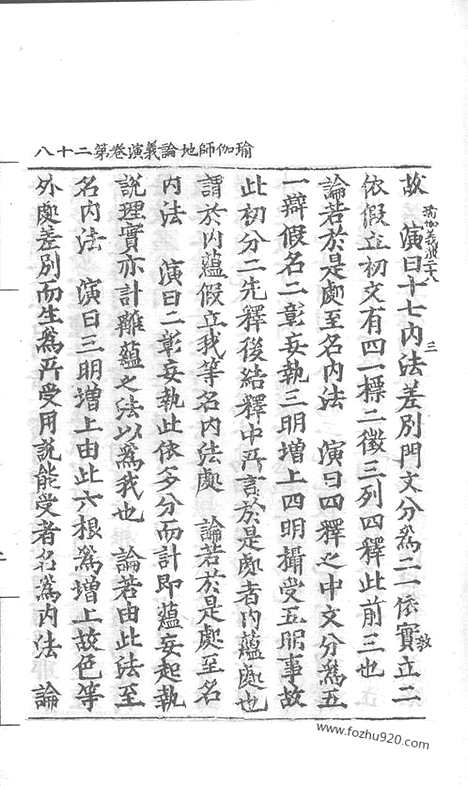 瑜伽師地論義演卷第二十八
瑜伽義演二十八 三
故 演曰十七內法差別門文分為二一依實立二
教
依假立初文有四一標二徵三列四釋此前三也
論若於是處至名內法 演曰四釋之中文分為五
一辯假名二彰妄執三明增上四明攝受五明事故
此初分二先釋後結釋中所言於是處者內蘊處也
謂於內蘊假立我等名內法處 論若於是處至名
內法 演曰二彰妄執此依多分而計即蘊妄起執
說理實亦計離蘊之法以為我也 論若由此法至
名內法 演曰三明增上由此六根為增上故色等
外處差別而生為所受用說能受者名為內法 論
www.fozhu920.com